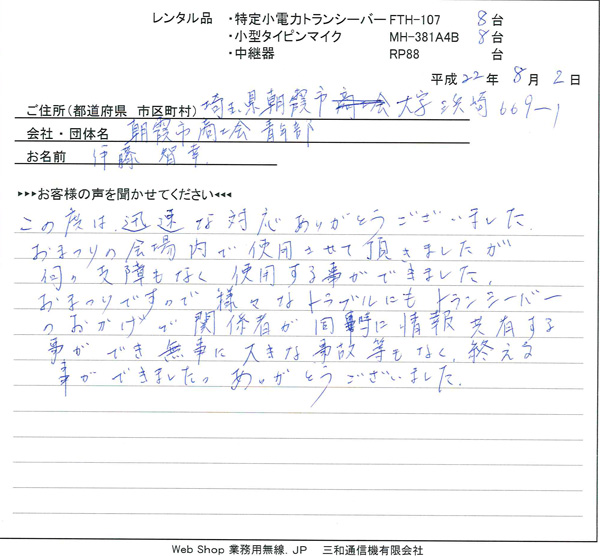 レンタル品 ・特定小電力トランシーバー FTH-107 8台
・小型タイピンマイク MH-381A4B 8台
・中継器 RP88 台
平成22年8月2日
ご住所(都道府県 市区町村) 埼玉県朝霞市 大字浜崎669-1
会社・団体名 朝霞市商工会青年部
お名前 伊藤智幸
▸▸▸お客様の声を聞かせてください◂◂◂
この度は、迅速な対応ありがとうございました。
おまつりの会場内で使用させて頂きましたが
何の支障もなく使用する事ができました。
おまつりですので様々なトラブルにもトランシーバー
のおかげで関係者が同時に情報共有する
事ができ無事に大きな事故等もなく、終える
事ができました。ありがとうございました。
Web Shop 業務用無線.JP 三和通信機有限会社